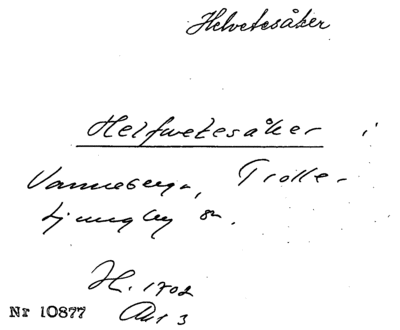 Helvetesåker
Helfwetesåker i
Vanneberga, Trolle-
ljungby sn.
H. 1702
Nr 10877